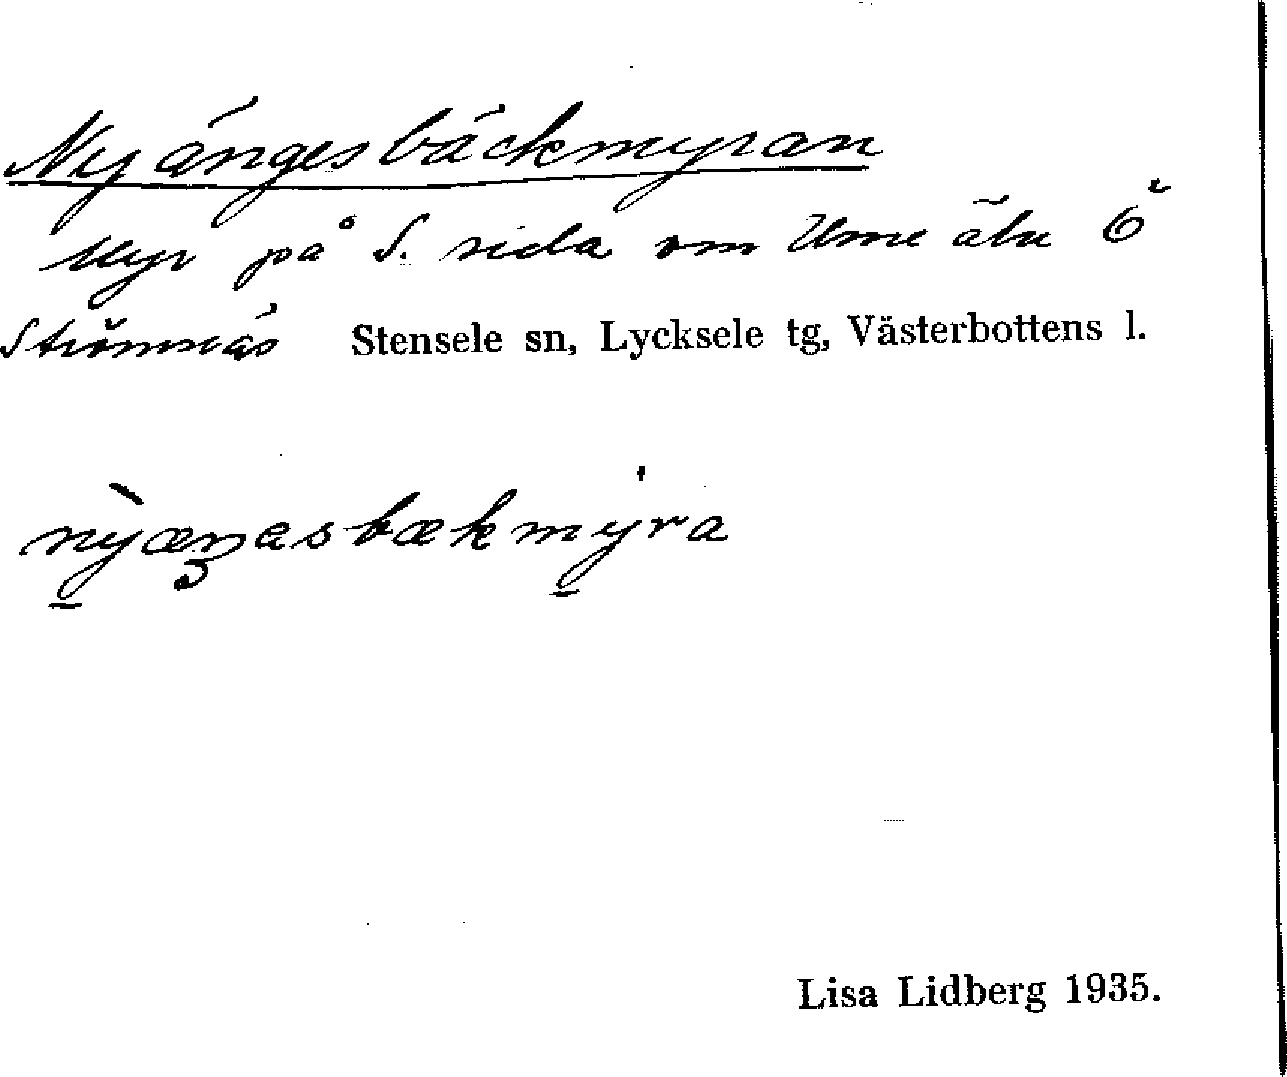 Nyängesbäckmyran
Myr på S. sida om Ume älv Ö
Strömnäs Stensele sn, Lycksele tg, Västerbottens l.
nỳæŋasbækmyra
Lisa Lidberg 1935.